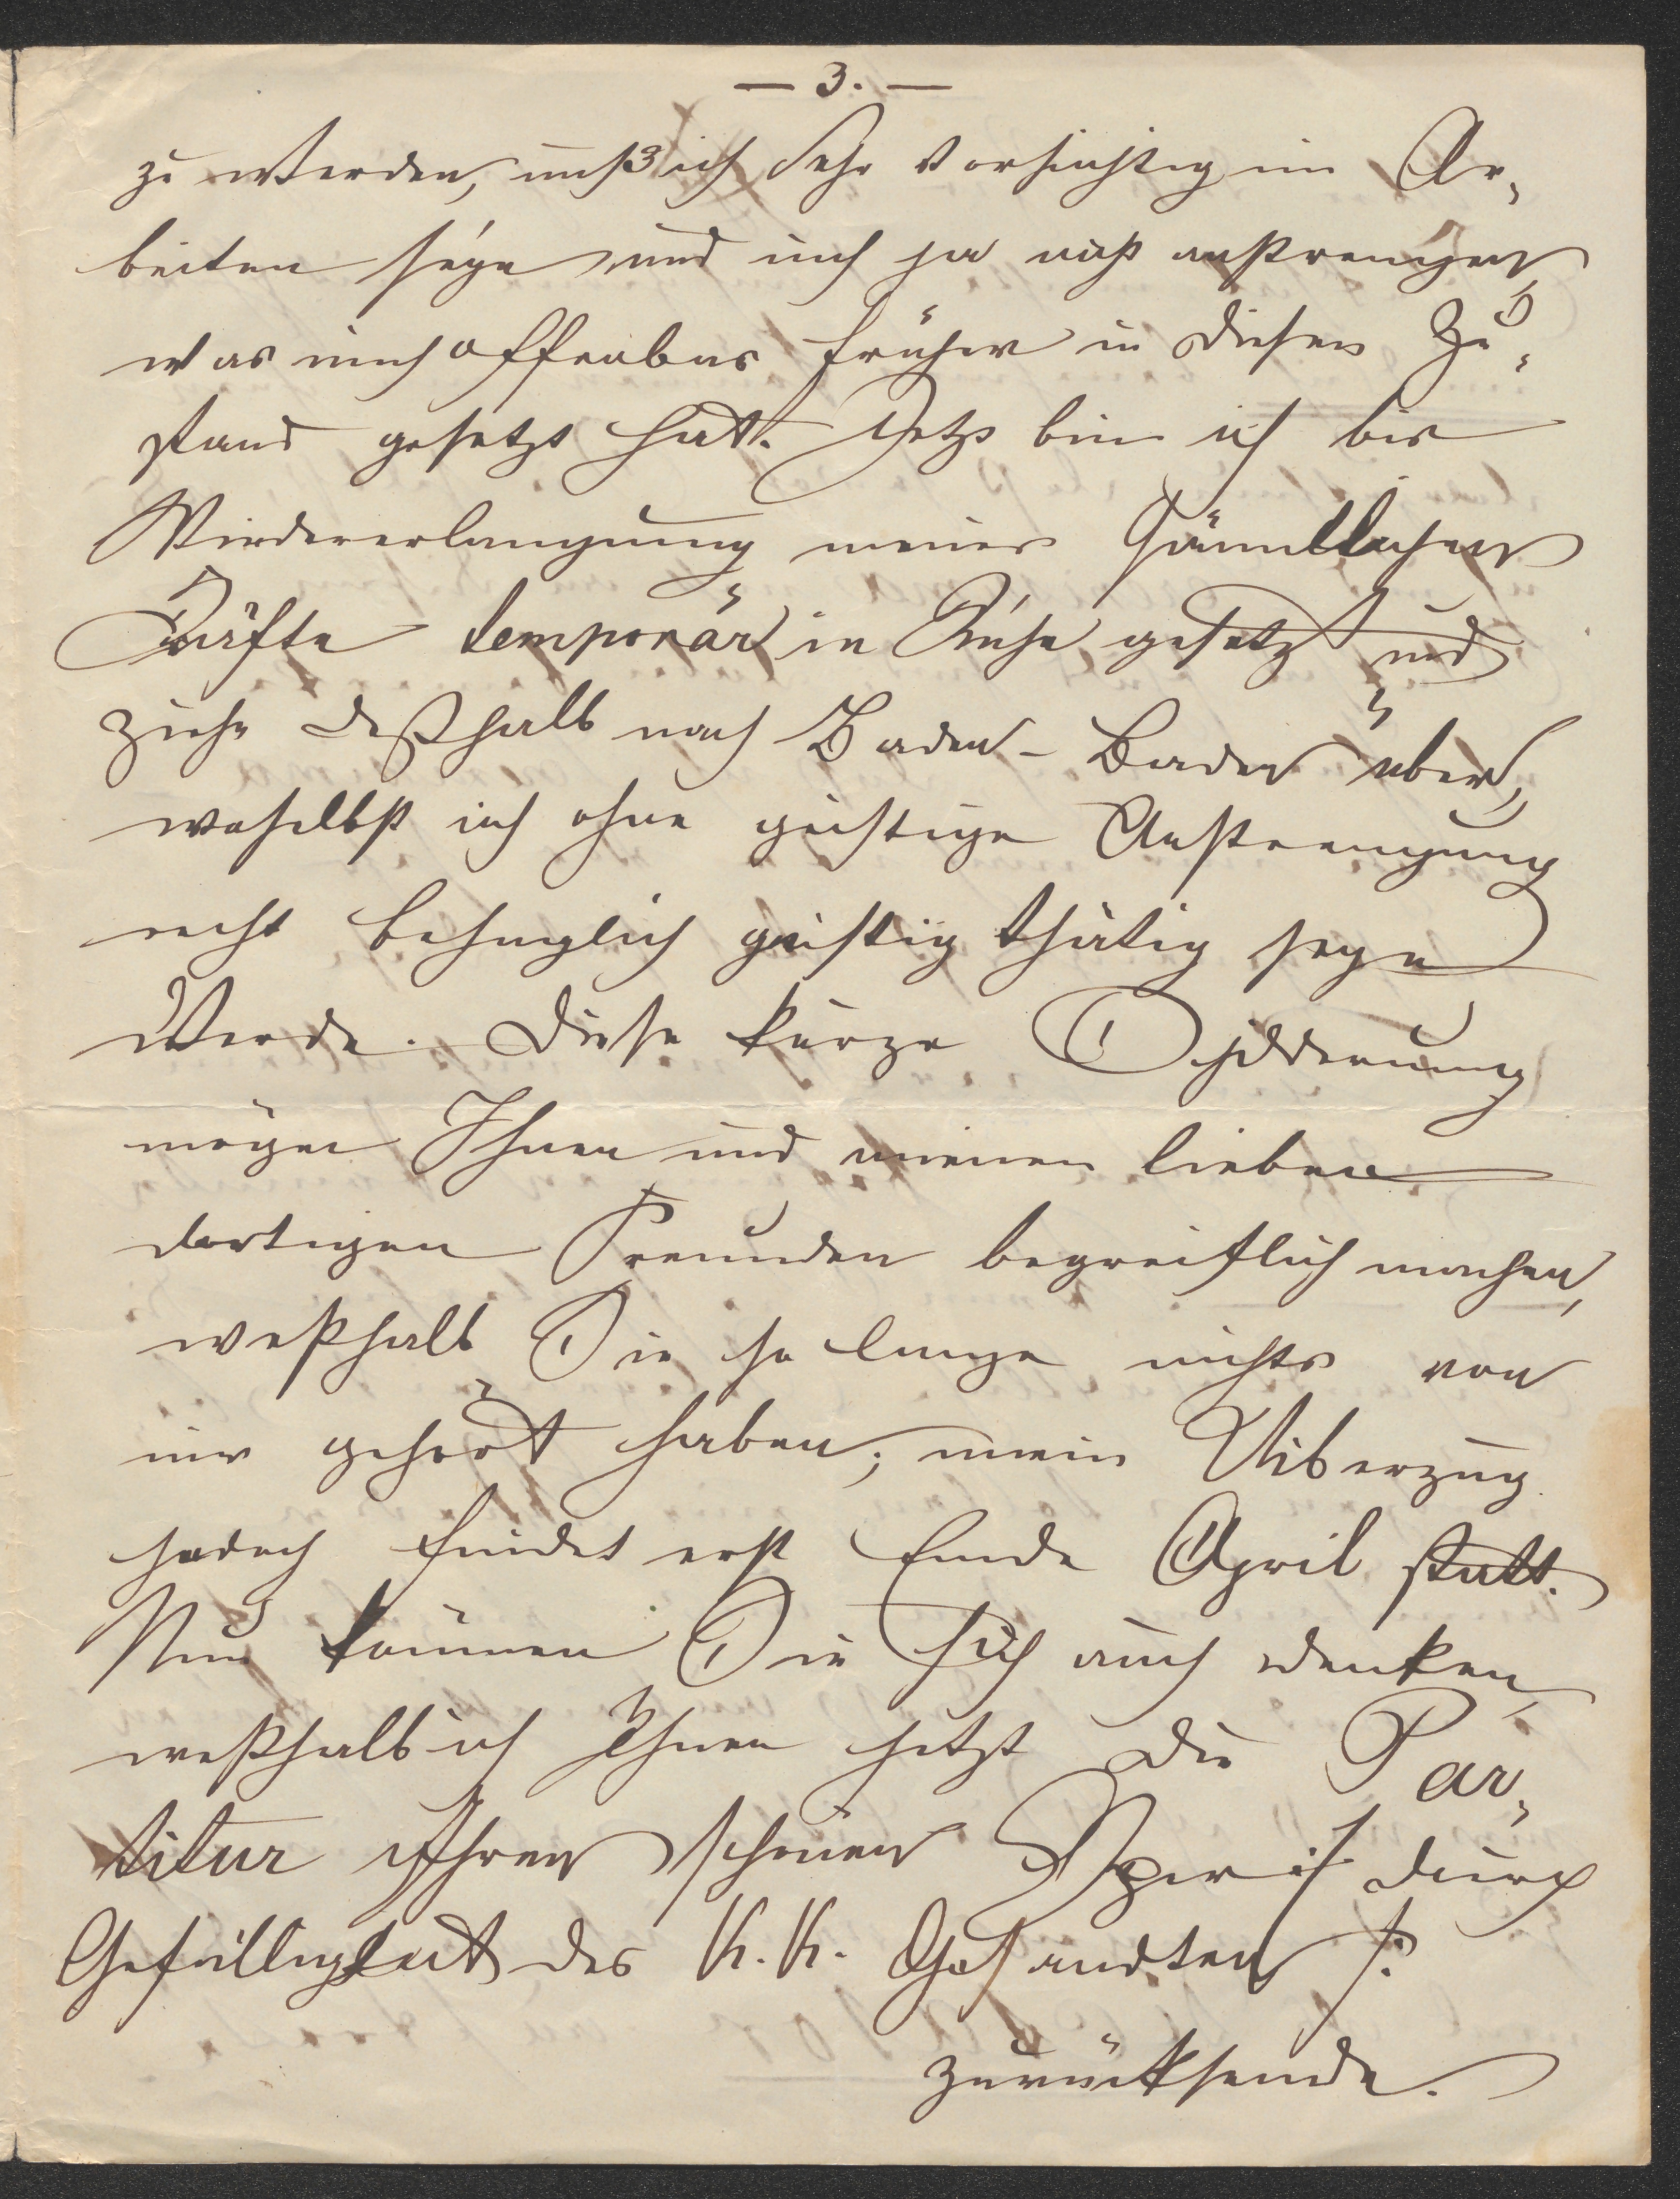 — 3. —
zu werden, muß ich sehr vorsichtig im Ar„
beiten seyn und mich ja nicht anstrengen,
was mich offenbar früher in diesen Zu„
stand gesetzt hat. Jetzt bin ich bis
Wiedererlangung meiner sämmtlichen
Kräfte temporär in Ruhe gesetzt und
ziehe deßhalb nach Baden-Baden über,
woselbst ich ohne geistige Anstrengung
recht behaglich geistig thätig seyn
werde. Diese kurze Schilderung
möge Ihnen und meinen lieben
dortigen Freunden begreiflich machen,
weßhalb Sie so lange nichts von
mir gehört haben; mein Uiberzug
jedoch findet erst Ende April statt.
Nun können Sie sich auch denken,
weßhalb ich Ihnen jetzt die Par„
titur Ihrer schönen Oper durch
Gefälligkeit des K. K. Gesandten
zurücksende.